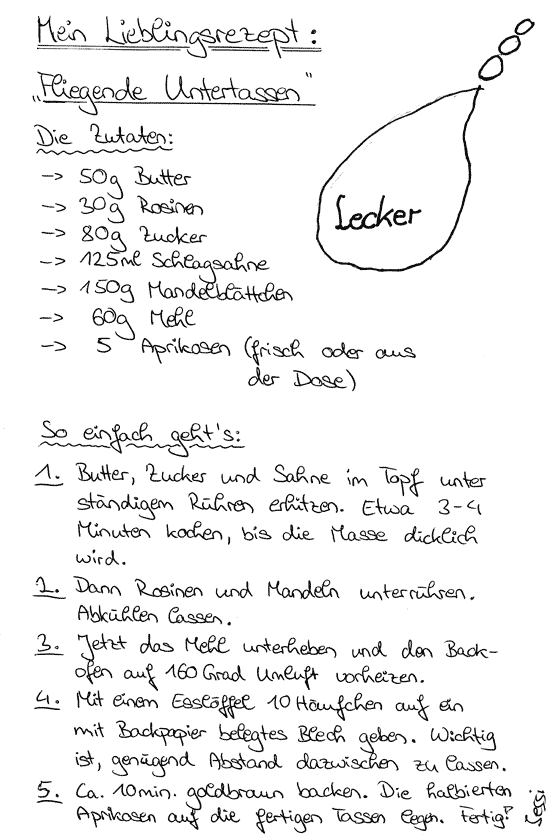 Mein Lieblingsrezept:
„Fliegende Untertassen"
Die Zutaten:
-> 50g Butter
-> 30g Rosinen
-> 80g Zucker
-> 125ml Schlagsahne
-> 150g Mandelblättchen
-> 60g Mehl
-> 5 Aprikosen (frisch oder aus
der Dose)
Lecker
So einfach geht's:
1. Butter, Zucker und Sahne im Topf unter
ständigem Rühren erhitzen. Etwa 3-4
Minuten kochen, bis die Masse dicklich
wird.
2. Dann Rosinen und Mandeln unterrühren.
Abkühlen lassen.
3. Jetzt das Mehl unterheben und den Back-
ofen auf 160 Grad Umluft vorheizen.
4. Mit einem Esslöffel 10 Häufchen auf ein
mit Backpapier belegtes Blech geben. Wichtig
ist, genügend Abstand dazwischen zu lassen.
5. Ca. 10min. goldbraun backen. Die halbierten
Aprikosen auf die fertigen Tassen legen. Fertig!